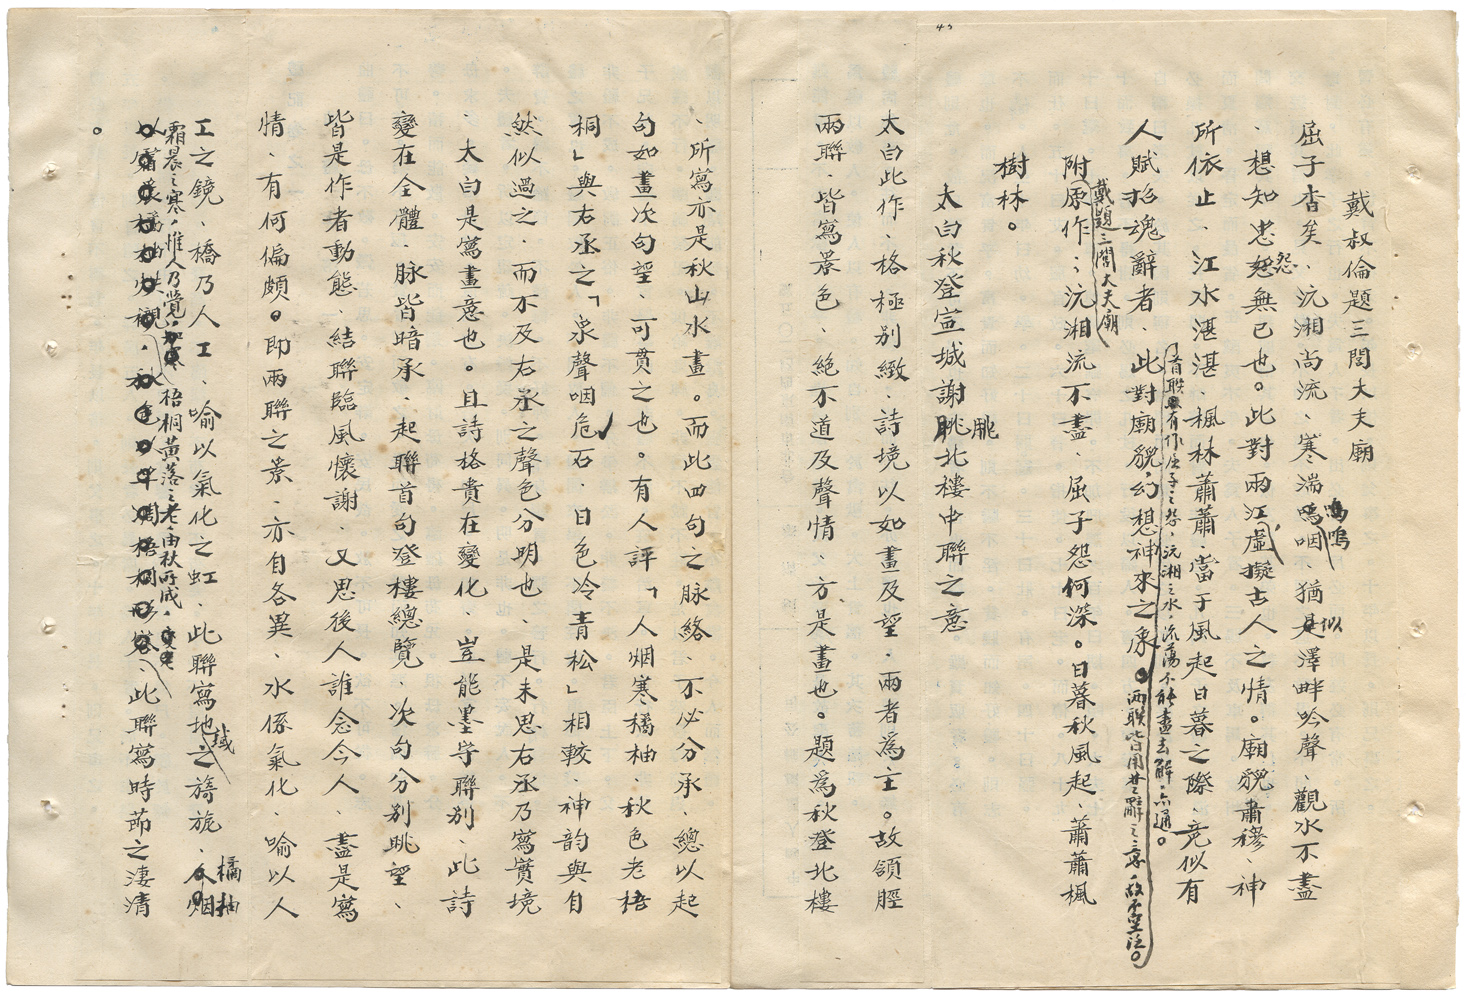 43
戴叔倫題三閭大夫廟
屈子杳矣、沅湘尚流、寒湍嗚咽、猶是澤畔吟聲、觀水不盡
嗚
似
、想知忠怨無已也。此對兩江虛擬古人之情。廟貌肅穆、神
怨
所依止、江水湛湛、楓林蕭蕭、當于風起日暮之際、竞似有
人賦招魂辭者、此對廟貌幻想神來之象。
首聯有作屈子之怨、沅湘之水、流蕩不能盡去解、亦通。
兩聯皆用楚辭之
附原作：沅湘流不盡、屈子怨何深。日暮秋風起、蕭蕭楓
戴題三閭大夫廟
樹林。
太白秋登宣城謝眺北樓中聯之意
朓
太白此作、格極別緻、詩境以如畫及望、兩者為主。故頷脛
兩聯、皆寫景色、絕不道及聲情、方是畫也。題為秋登北樓
、所寫亦是秋山水畫。而此四句之脉絡、不必分承、總以起
句如畫次句望、可貫之也。有人評「人烟寒橘柚、秋色老梧
桐」與右丞之「泉聲咽危石、日色冷青松」相較、神韵與自
然似過之、而不及右丞之聲色分明也、是未思右丞乃寫實境
太白是寫畫意也。且詩格貴在變化、豈能墨守聯別、此詩
變在全體、脉皆暗承、起聯首句登樓總覽、次句分別眺望、
皆是作者動態、結聯臨風懷謝、又思後人誰念今人、盡是寫
情、有何偏頗。即兩聯之景、亦自各異、水係氣化、喻以人
工之鏡、橋乃人工、喻以氣化之虹、此聯寫地之旖旎、人烟
域
橘柚
霜晨之寒、惟人乃覺、
梧桐黃落之老、由秋所成、
此聯寫時節之淒清
。